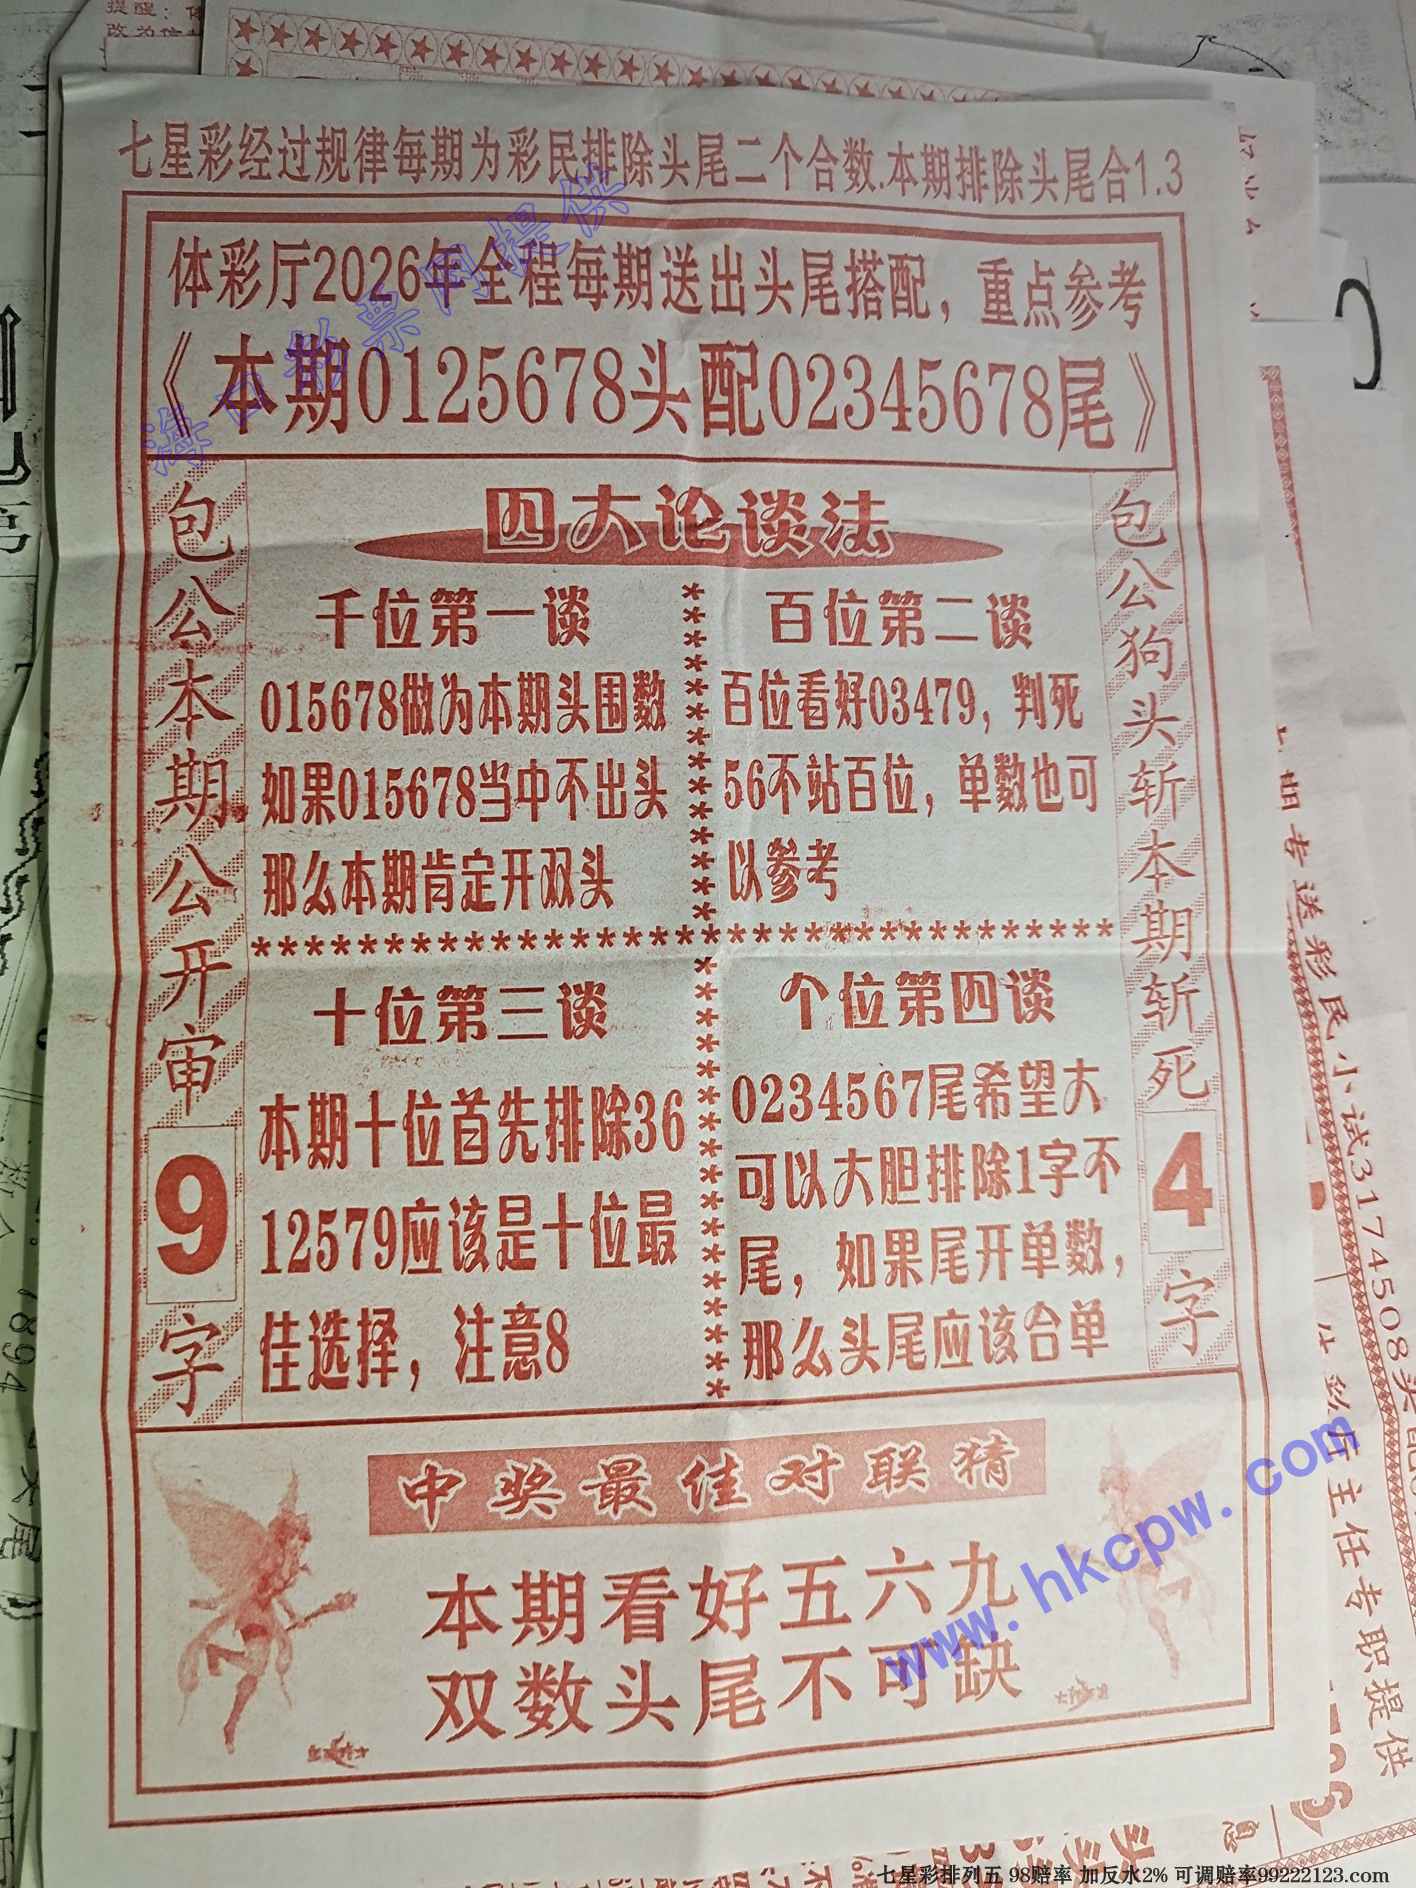 七星彩经过规律每期为彩民排除头尾二个合数.本期排除头尾合1.3
体彩厅2026年全程每期送出头尾搭配，重点参考
《本期0125678头配02345678尾》
海口彩票网提供
包公本期公开审9字
四大论谈法
千位第一谈
015678做为本期头围数
如果015678当中不出头
那么本期肯定开双头
百位第二谈
百位看好03479，判死
56不站百位，单数也可
以参考
十位第三谈
本期十位首先排除36
12579应该是十位最
佳选择，注意8
个位第四谈
0234567尾希望大
可以大胆排除1字不
尾，如果尾开单数，
那么头尾应该合单
包公狗头斩本期斩死4字
中奖最佳对联猜
本期看好五六九
双数头尾不可缺
www.hkcpw.com
期专送彩民小试3174508头
主任专职提供
七星彩排列五 98赔率 加反水2% 可调赔率99222123.com